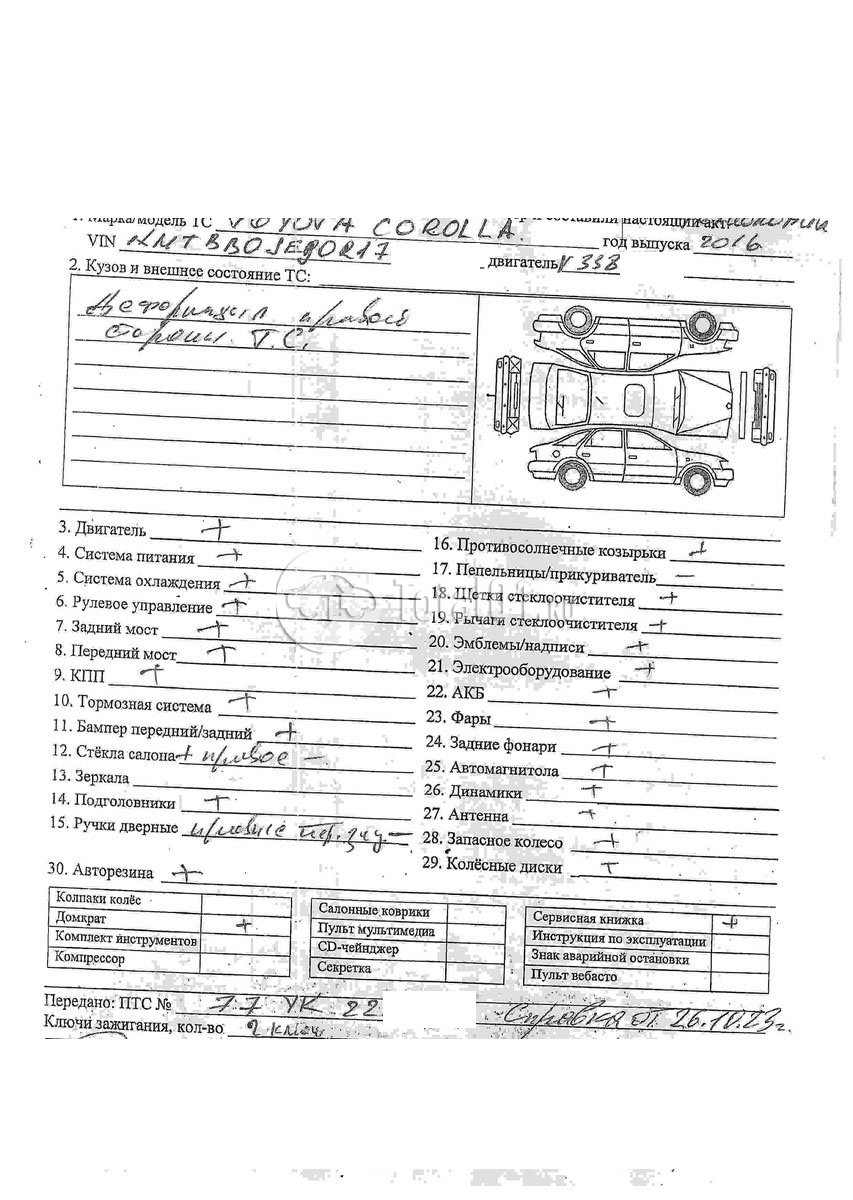 1. Марка/модель ТС TOYOTA COROLLA. составили настоящий акт,
VIN NMTBB0JE90R17 год выпуска 2016
двигатель V 338
2. Кузов и внешнее состояние ТС:
Деформация правой
стороны Т.С.
3. Двигатель +
4. Система питания +
5. Система охлаждения +
6. Рулевое управление +
7. Задний мост +
8. Передний мост +
9. КПП +
10. Тормозная система +
11. Бампер передний/задний +
12. Стёкла салона + правое –
13. Зеркала
14. Подголовники +
15. Ручки дверные правые пер. зад. –
16. Противосолнечные козырьки +
17. Пепельницы/прикуриватель –
18. Щетки стеклоочистителя +
19. Рычаги стеклоочистителя +
20. Эмблемы/надписи +
21. Электрооборудование +
22. АКБ +
23. Фары +
24. Задние фонари +
25. Автомагнитола +
26. Динамики +
27. Антенна +
28. Запасное колесо +
29. Колёсные диски +
30. Авторезина +
Колпаки колёс
Домкрат +
Комплект инструментов
Компрессор
Салонные коврики
Пульт мультимедиа
CD-чейнджер
Секретка
Сервисная книжка +
Инструкция по эксплуатации
Знак аварийной остановки
Пульт вебасто
Передано: ПТС № 77 УК 22
Справка от 26.10.23г.
Ключи зажигания, кол-во 2 ключ
total01.ru